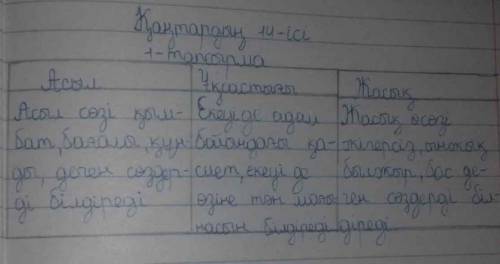 Қаңтардың 14-ісі
1-тапсырма
Асыл Ұқсастығы Жасық
Асыл сөзі қым-
бат, бағалы, құн-
ды, деген сөздер-
ді білдіреді
Екеуі де адам
бойындағы қа-
сиет, екеуі де
өзіне тән мағы-
насын білдіреді
Жасық сөзі
жігерсіз, ынжық
былжыр, бос де-
ген сөздерді біл-
діреді